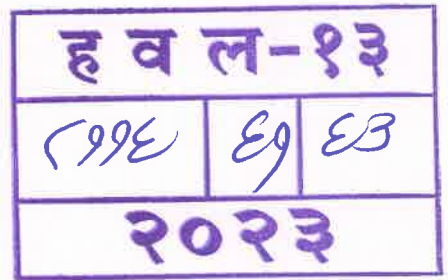 ह व ल-१३
८११६ ६१ ६३
२०२३